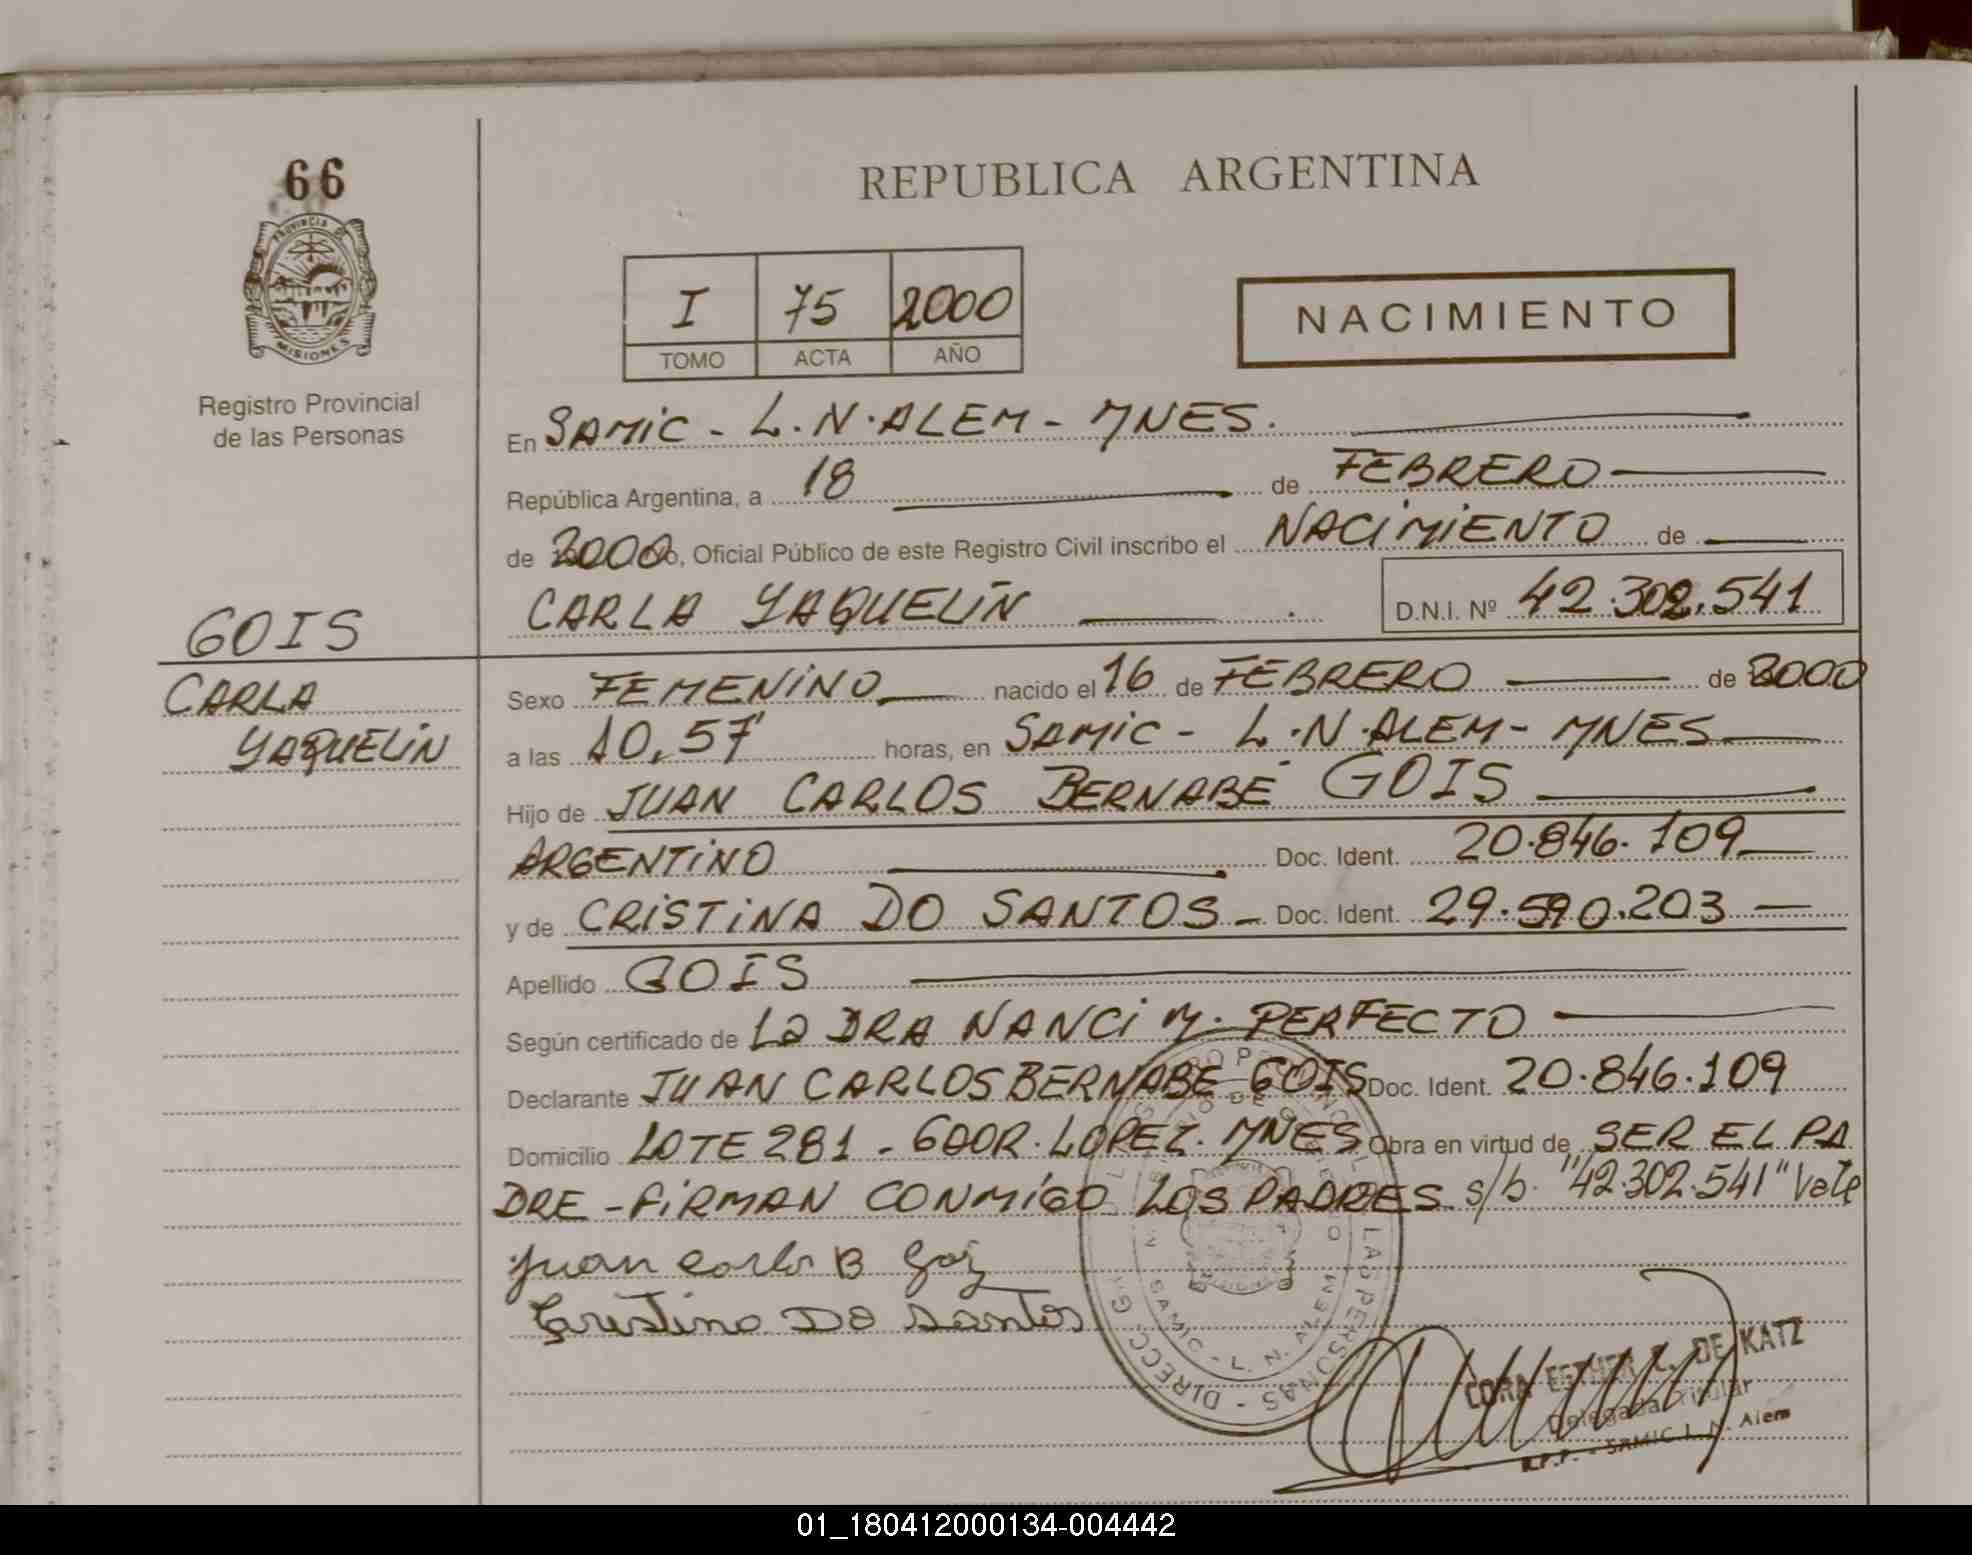 66
PROVINCIA DE
MISIONES
Registro Provincial
de las Personas
REPUBLICA ARGENTINA
I 75 2000
TOMO ACTA AÑO
NACIMIENTO
En SAMIC - L.N.ALEM - MNES.
República Argentina, a 18 de FEBRERO
de 2000 yo, Oficial Público de este Registro Civil inscribo el NACIMIENTO de
CARLA YAQUELIN D.N.I. Nº 42.302.541
GOIS
CARLA
YAQUELIN
Sexo FEMENINO nacido el 16 de FEBRERO de 2000
a las 10,57' horas, en SAMIC - L.N.ALEM - MNES
Hijo de JUAN CARLOS BERNABE GOIS
ARGENTINO Doc. Ident. 20.846.109
y de CRISTINA DO SANTOS - Doc. Ident. 29.590.203
Apellido GOIS
Según certificado de La DRA NANCI M. PERFECTO
Declarante JUAN CARLOS BERNABE GOIS Doc. Ident. 20.846.109
Domicilio LOTE 281 - GDOR. LOPEZ. MNES Obra en virtud de SER EL PA
DRE - FIRMAN CONMIGO LOS PADRES. s/b. "42.302.541" Vale
Juan Carlos B Gois
Cristina Do Santos
SAMIC - L. N. ALEM
CORA ESTHER DE KATZ
Delegada Titular
R.P.P. - SAMIC L. N. Alem
01_180412000134-004442